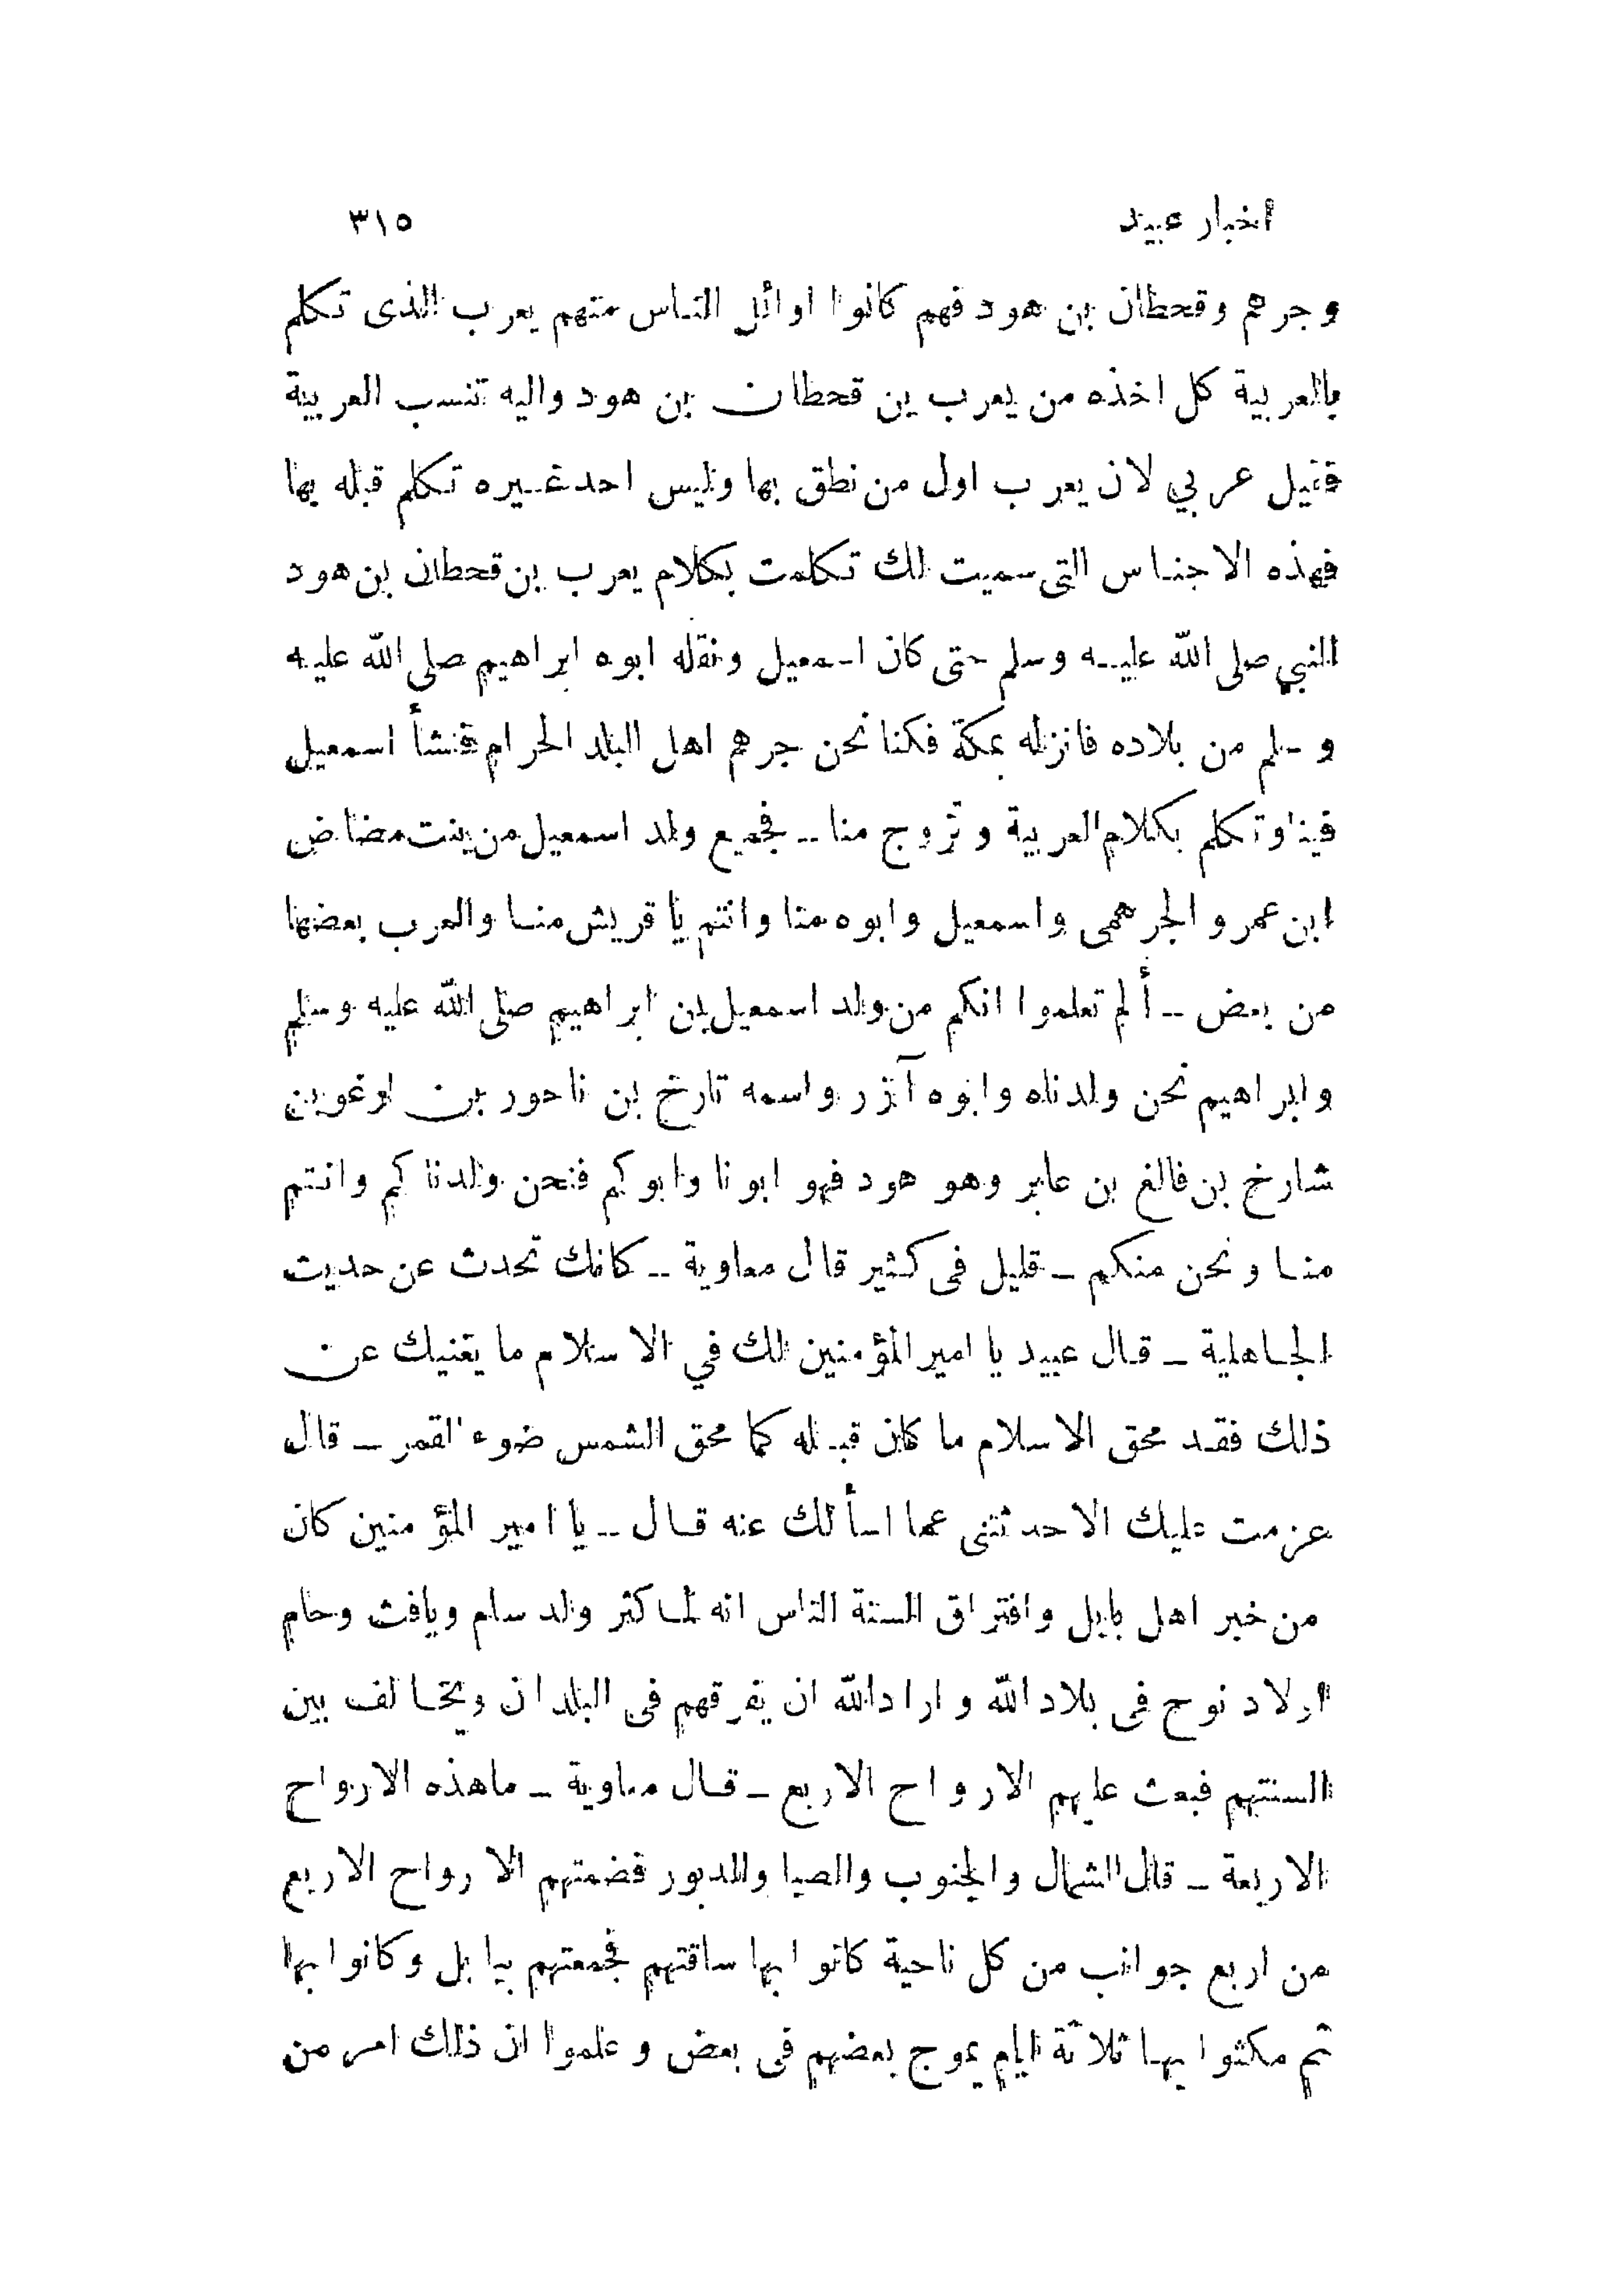 اخبار عبيد ٣١٥
وجرهم وقحطان بن هود فهم كانوا اوائل الناس منهم يعرب الذى تكلم
بالعربية كل اخذه من يعرب بن قحطان بن هود واليه تنسب العربية
فقيل عربي لان يعرب اول من نطق بها وليس احد غيره تكلم قبله بها
فهذه الاجناس التى سميت لك تكلمت بكلام يعرب بن قحطان بن هود
النبي صلى الله عليه وسلم حتى كان اسمعيل ونقله ابوه ابراهيم صلى الله عليه
وسلم من بلاده فانزله بمكة فكنا نحن جرهم اهل البلد الحرام فنشأ اسمعيل
فينا وتكلم بكلام العربية وتزوج منا ــ فجميع ولد اسمعيل من بنت مضاض
ابن عمرو الجرهمى واسمعيل وابوه منا وانتم يا قريش منا والعرب بعضها
من بعض ــ ألم تعلموا انكم من ولد اسمعيل بن ابراهيم صلى الله عليه وسلم
وابراهيم نحن ولدناه وابوه آزر واسمه تارخ بن ناحور بن ارغو بن
شارخ بن فالغ بن عابر وهو هود فهو ابونا وابوكم فنحن ولدناكم وانتم
منا ونحن منكم ــ قليل فى كثير قال معاوية ــ كانك تحدث عن حديث
الجاهلية ــ قال عبيد يا امير المؤمنين لك في الاسلام ما يغنيك عن
ذلك فقد محق الاسلام ما كان قبله كما محق الشمس ضوء القمر ــ قال
عزمت عليك الاحدثتنى عما اسألك عنه قال ــ يا امير المؤمنين كان
من خبر اهل بابل وافتراق السنة الناس انه لما كثر ولد سام ويافث وحام
اولاد نوح فى بلاد الله واراد الله ان يفرقهم فى البلدان ويخالف بين
السنتهم فبعث عليهم الارواح الاربع ــ قال معاوية ــ ماهذه الارواح
الاربعة ــ قال الشمال والجنوب والصبا والدبور فضمتهم الارواح الاربع
من اربع جوانب من كل ناحية كانوا بها ساقتهم فجمعتهم ببابل وكانوا بها
ثم مكثوا بها ثلاثة ايام يموج بعضهم فى بعض وعلموا ان ذلك امر من